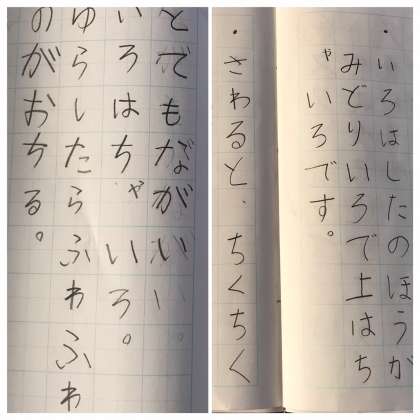 とでもながい。
いろはちゃいろ。
ゆらしたらふわふわ
のがおちる。
・いろはしたのほうが
みどりいろで上はち
ゃいろです。
・さわると、ちくちく